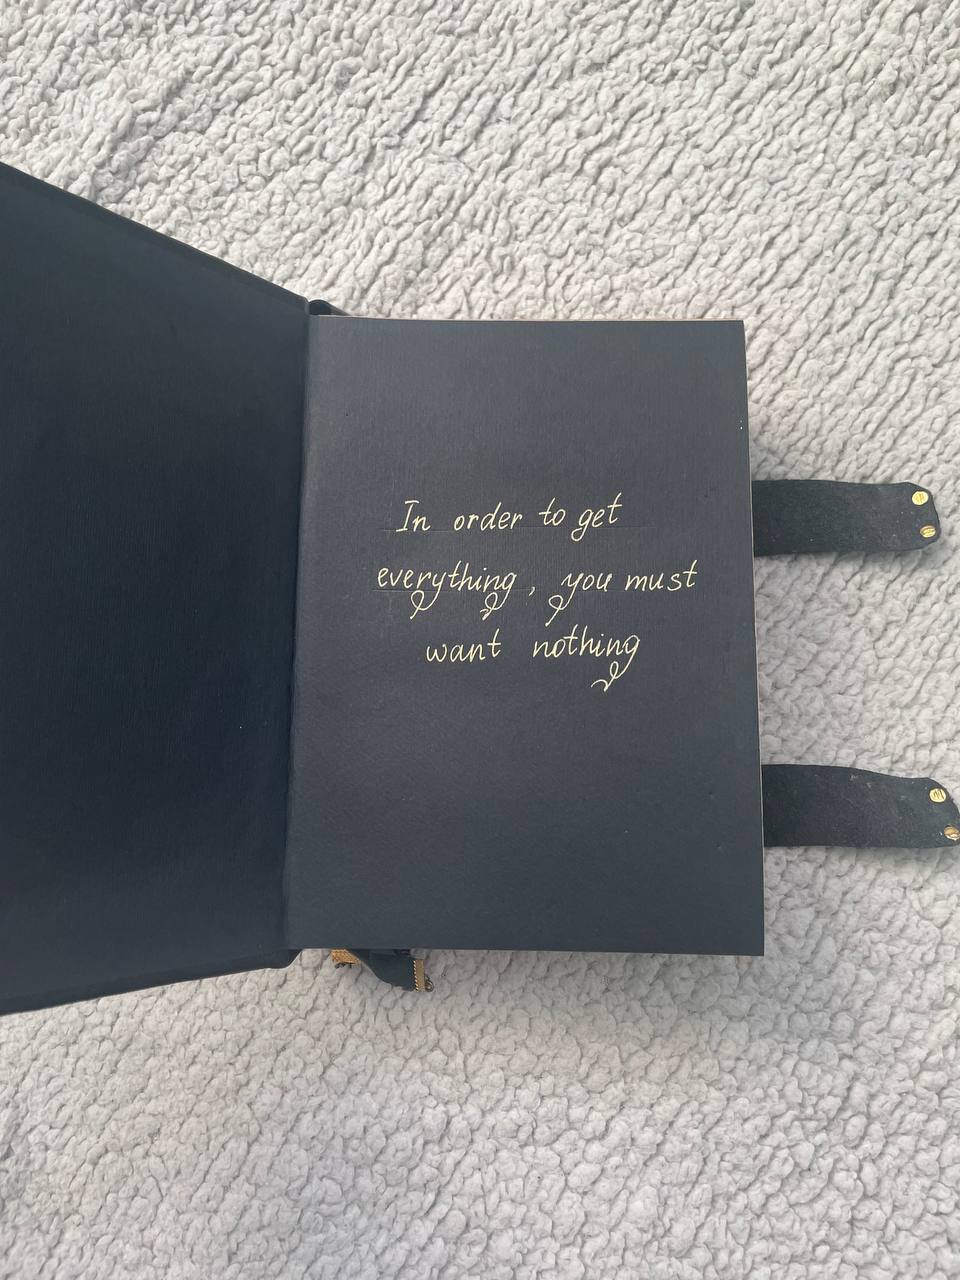 In order to get
everything, you must
want nothing